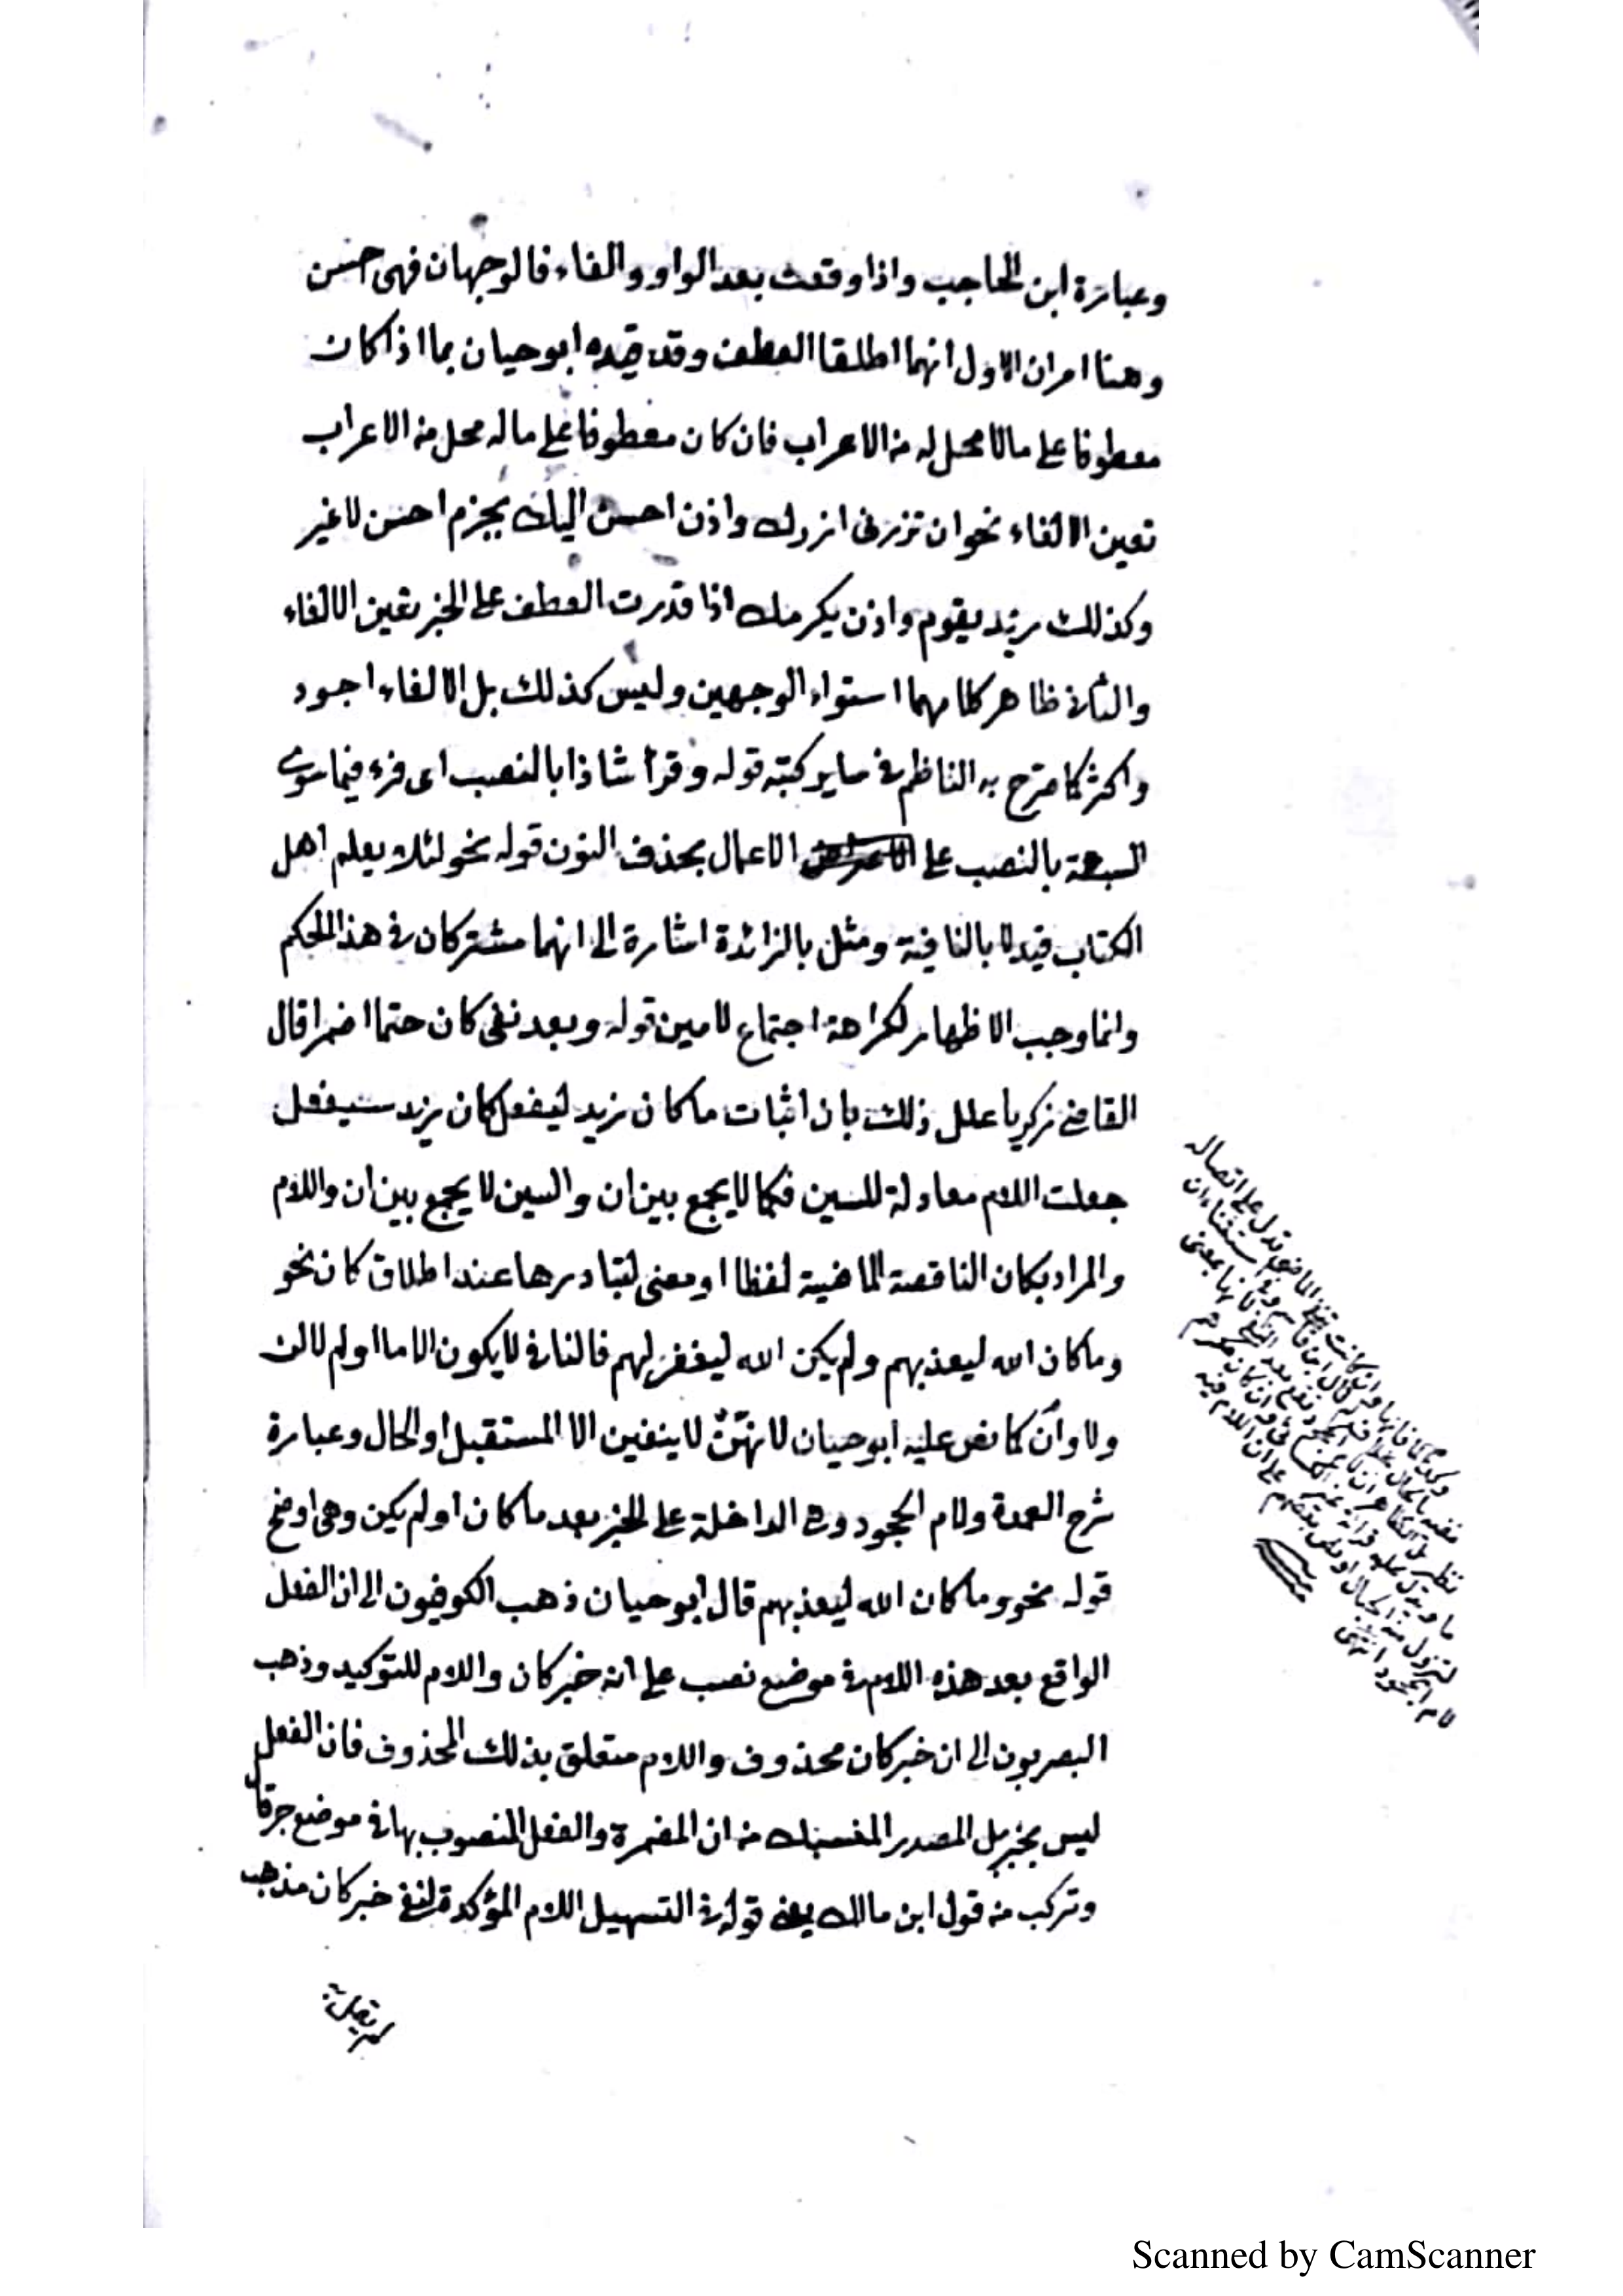 وعبارة ابن الحاجب واذا وقعت بعد الواو والفاء فالوجهان فهى حسن
وهنا امران الاول انهما اطلقا العطف وقد قيده ابو حيان بما اذا كان
معطوفا على مالا محل له من الاعراب فان كان معطوفا على ماله محل من الاعراب
تعين الالغاء نحو ان تزرنى ازرك واذن احسن اليك بجزم احسن لا غير
وكذلك زيد يقوم واذن يكرمك اذا قدرت العطف على الخبر تعين الالغاء
والثانى ظاهر كلامهما استواء الوجهين وليس كذلك بل الالغاء اجود
واكثر كما صرح به الناظم فى سابر كتبه قوله وقرأ شاذا بالنصب اى قرء فيما سوى
السبعة بالنصب على الاعمال بحذف النون قوله نحو لئلا يعلم اهل
الكتاب قيد لا بالنافية ومثل بالزائدة اشارة الى انهما مشتركان فى هذا الحكم
وانما وجب الاظهار لكراهة اجتماع لامين قوله وبعد نفى كان حتما اضمرا قال
القاضى زكريا علل ذلك بان اثبات ما كان زيد ليفعل كان زيد سيفعل
جعلت اللام معادلة للسين فكما لا يجمع بين ان والسين لا يجمع بين ان واللام
والمراد بكان الناقصة الماضية لفظا او معنى لتبادرها عند اطلاق كان نحو
وما كان الله ليعذبهم ولم يكن الله ليغفر لهم فالنافى لا يكون الا ما او لم لا لن
ولا وان كما نص عليه ابو حيان لانهن لا ينفين الا المستقبل او الحال وعبارة
شرح العمدة ولام الجحود وهى الداخلة على الخبر بعد ما كان او لم يكن وهى اوضح
قوله نحو وما كان الله ليعذبهم قال ابو حيان ذهب الكوفيون الى ان الفعل
الواقع بعد هذه اللام فى موضع نصب على انه خبر كان واللام للتوكيد وذهب
البصريون الى ان خبر كان محذوف واللام متعلق بذلك المحذوف فان الفعل
ليس بخبر بل المصدر المنسبك من ان المضمرة والفعل المنصوب بها فى موضع جر قال
وتركب من قول ابن مالك يعنى قوله فى التسهيل اللام المؤكدة لنفى خبر كان مذهب
لم يقل